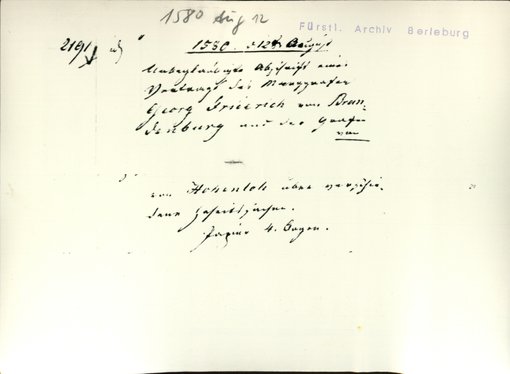 1580 Aug 12
Fürstl. Archiv Berleburg
2191
1580. d 12t August
Unbeglaubigte Abschrift eines
Vertrags des Marggrafen
Georg Friedrich von Bran-
denburg und der Grafen
von
von Hohenloh über verschie-
dene Hoheitssachen.
Papier 4. Bogen.